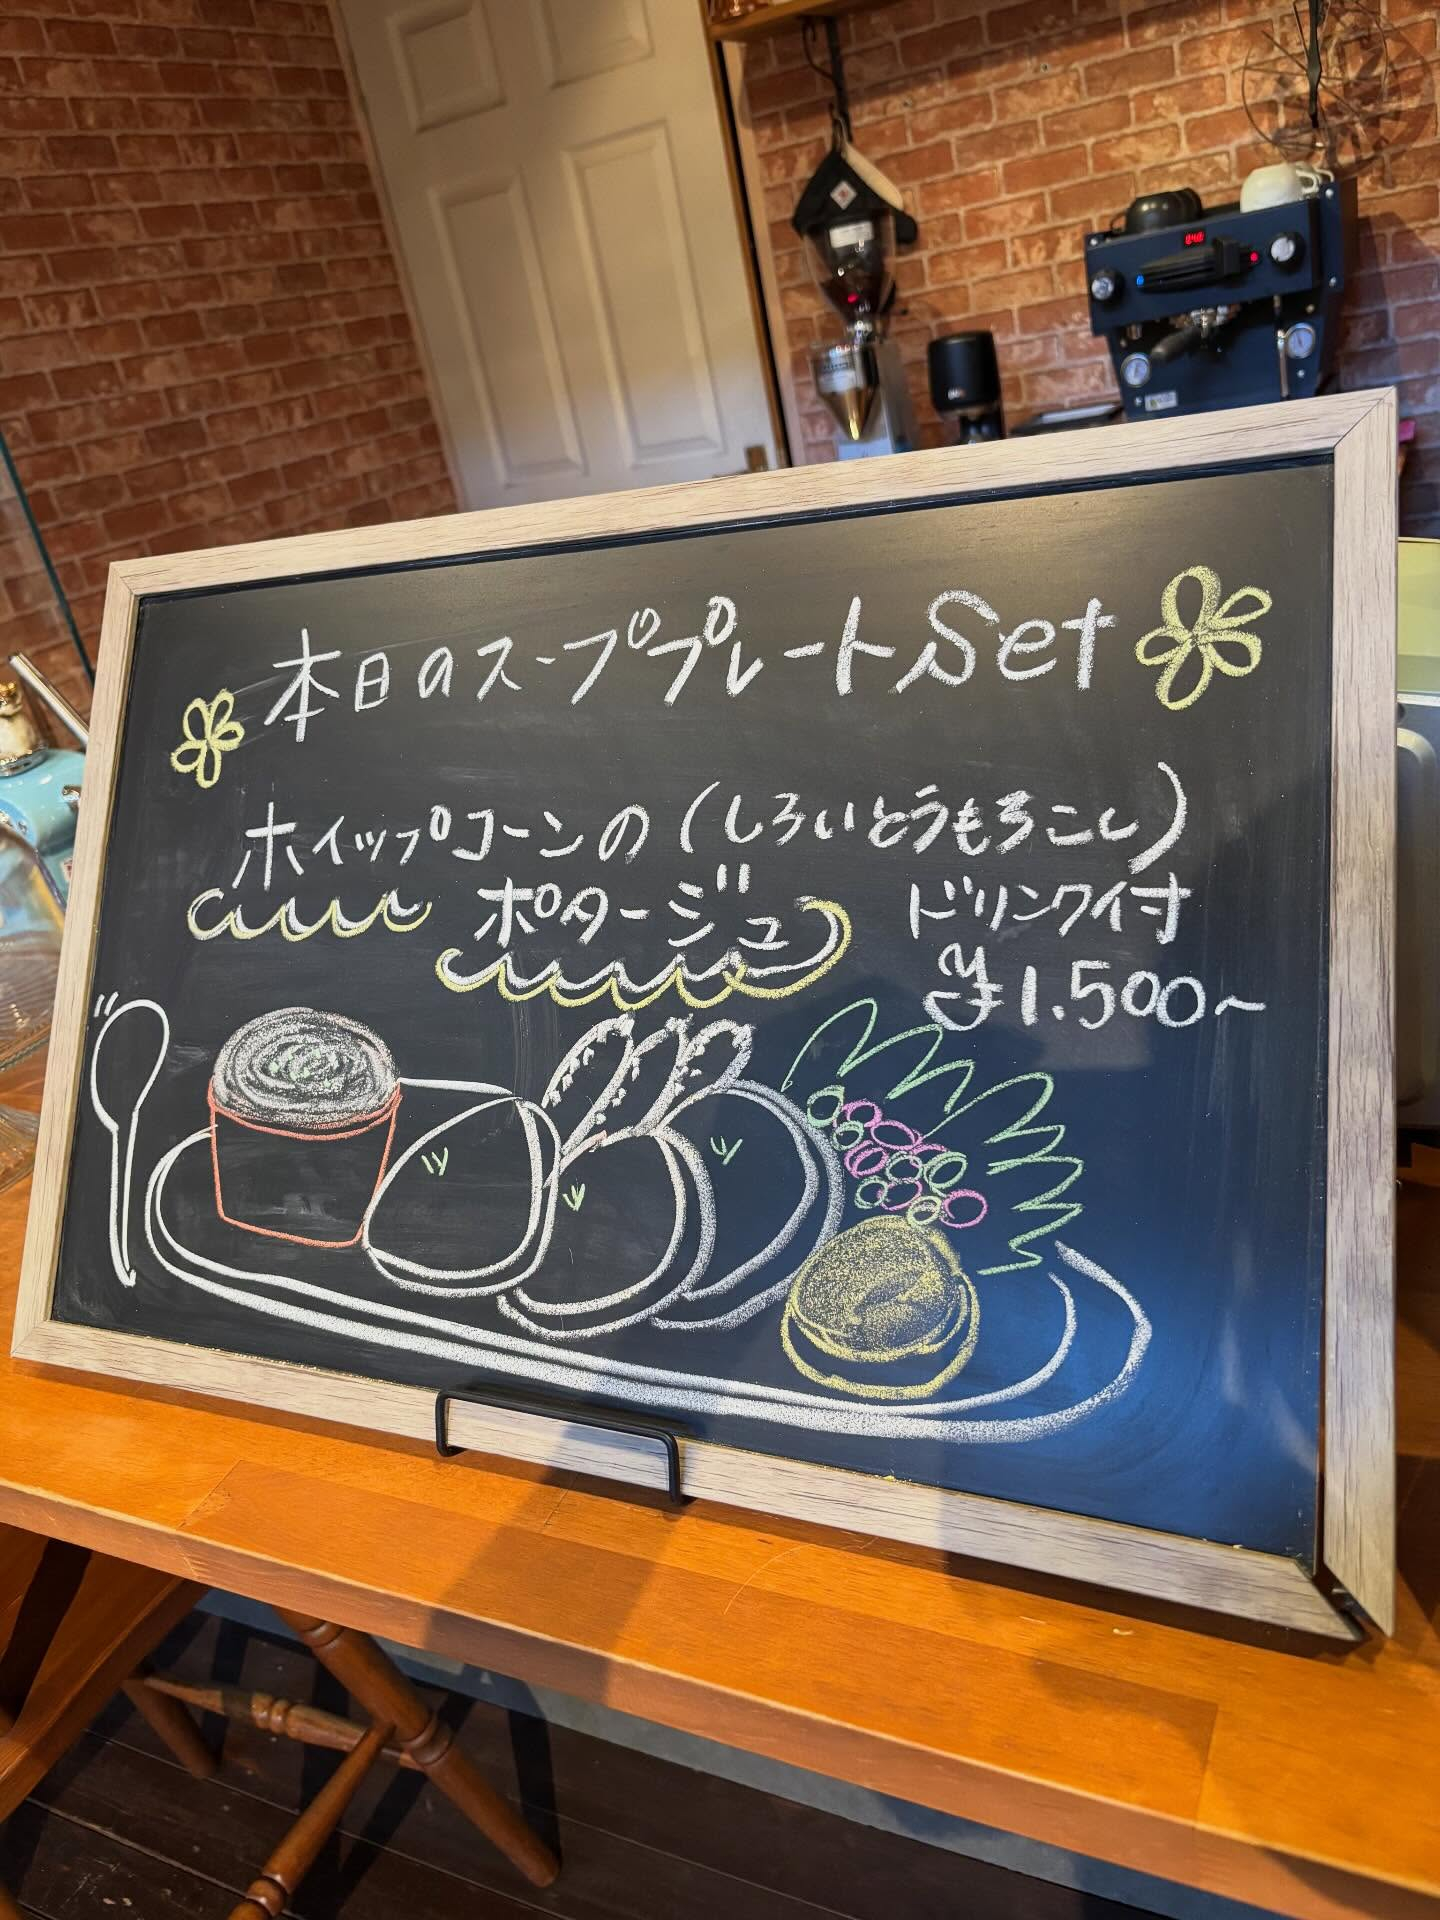 本日のスーププレートSet
ホイップコーンの(しろいとうもろこし)
ポタージュ
ドリンク付
¥1.500~